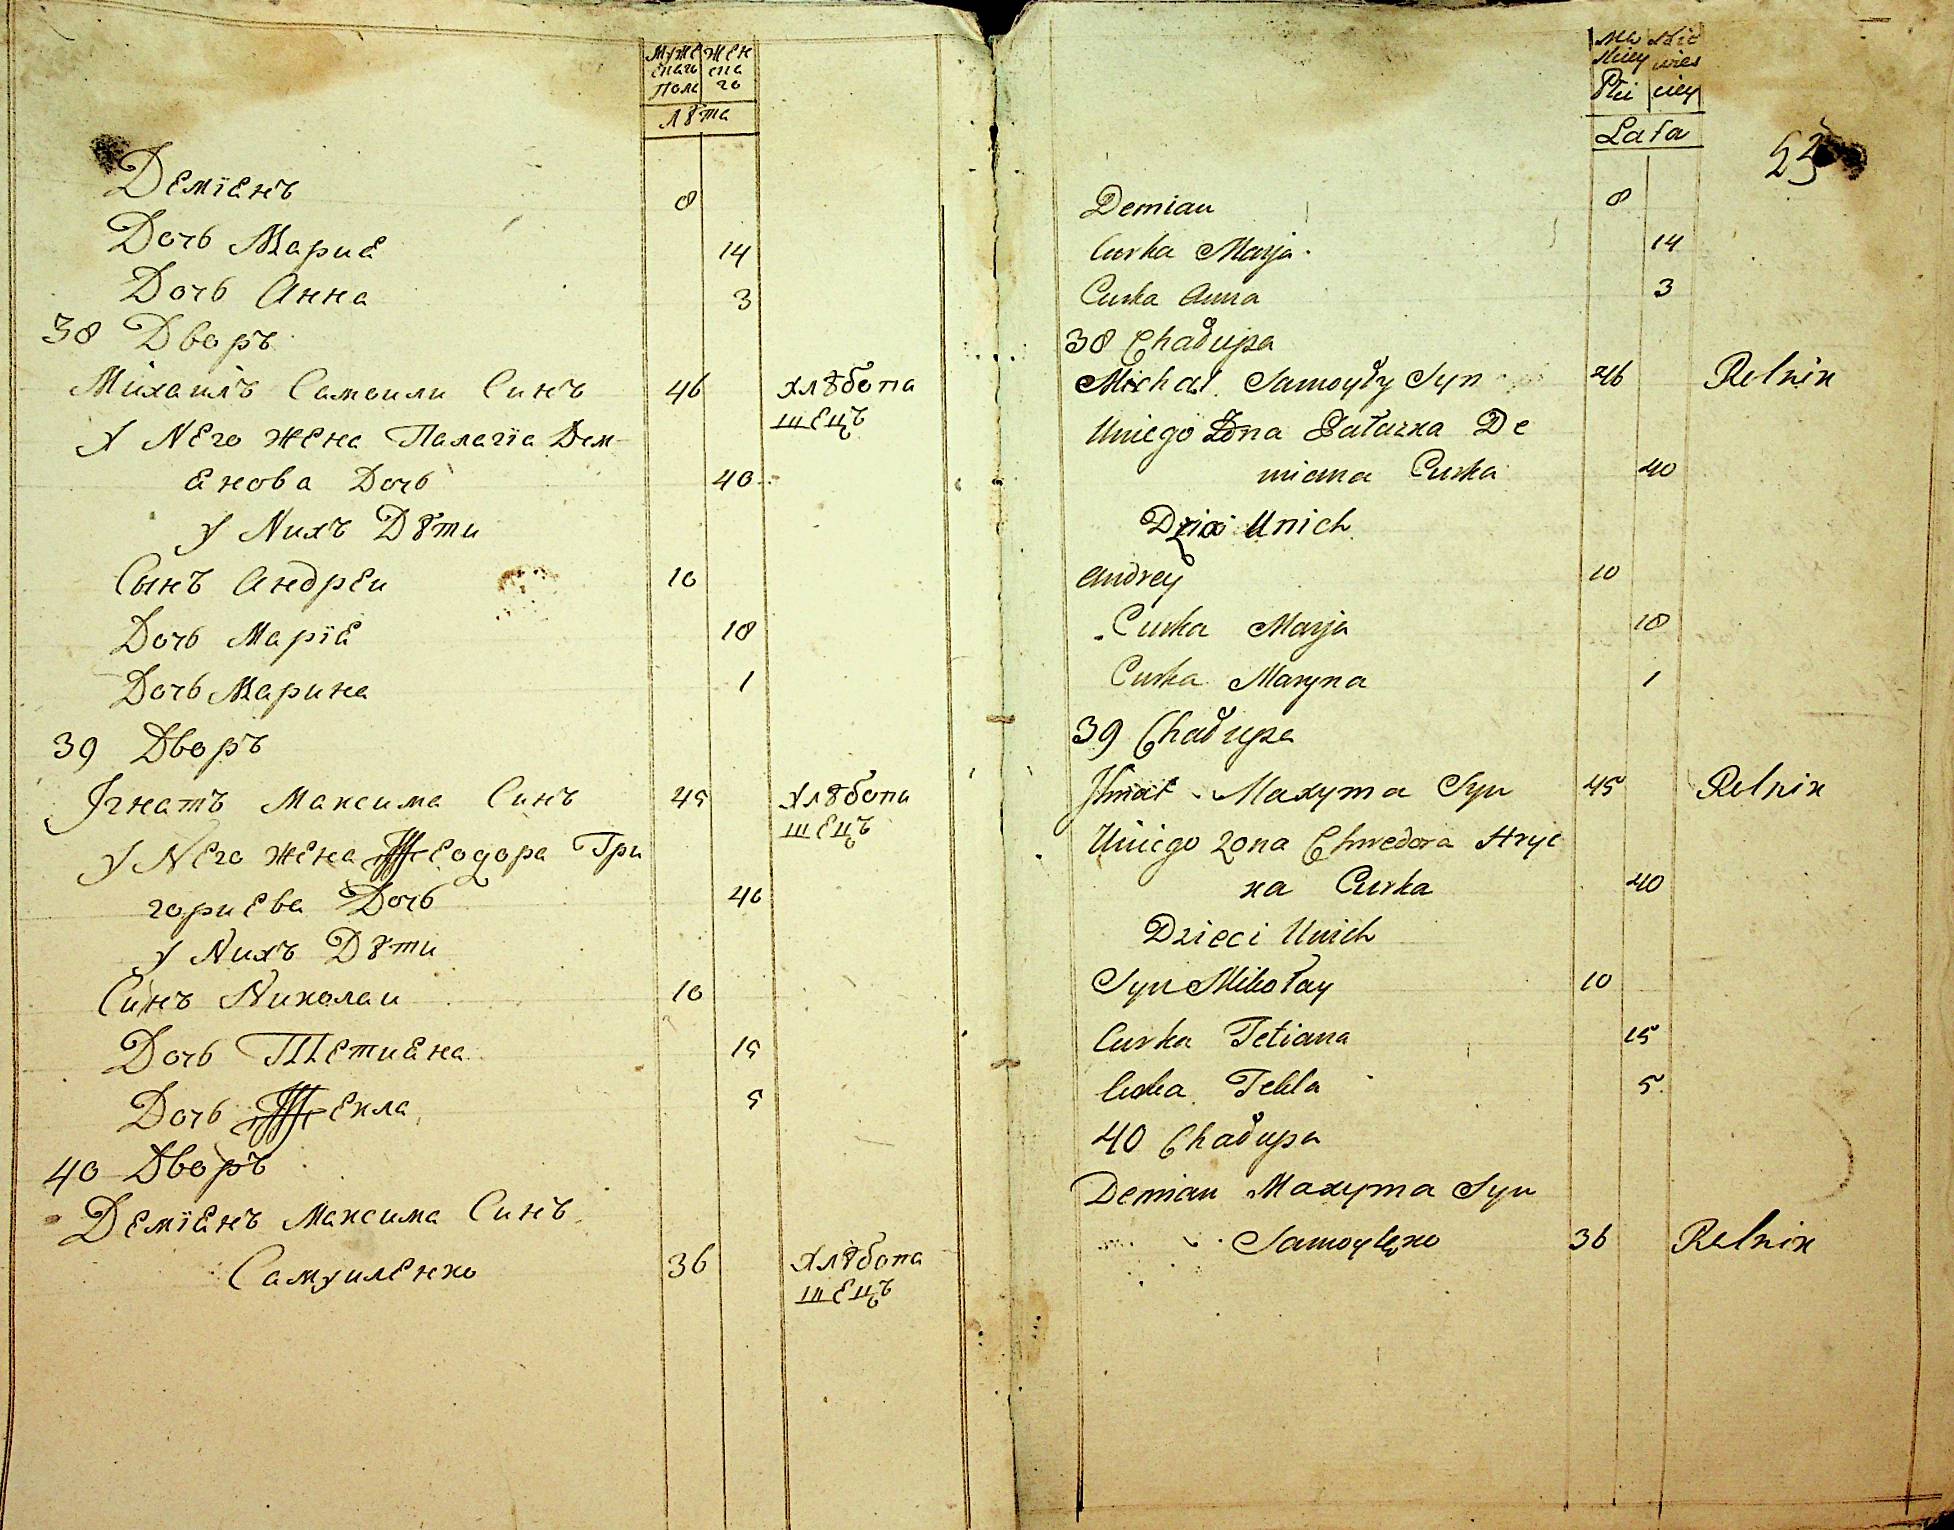 Муже Жен
ского ска
Пола го
Лѣта
Деміенъ 8
Дочь Марие 14
Дочь Анна 3
38 Дворъ
Михаилъ Самоили Синъ 46 хлѣбопа
шецъ
у Него жена Палагіа Дем
енова Дочь 40
у Нихъ Дѣти
Сынъ Андреи 10
Дочь Маріе 18
Дочь Марина 1
39 Дворъ
Ігнатъ Максима Синъ 45 хлѣбопа
шецъ
у Него жена Ѳеодора Гри
гориева Дочь 40
у Нихъ Дѣти
Синъ Николаи 10
Дочь Тетиена 15
Дочь Текла 5
40 Дворъ
Деміенъ Максима Синъ
Самуиленко 36 хлѣбопа
шецъ
Płci
Lata
53
Demian 8
Curka Marja 14
Curka Anna 3
38 Chałupa
Michał Samoyły Syn 46 Rolnik
Uniego Zona Pałazka De
miana Curka 40
Dzieci Unich
Andrey 10
Curka Marja 18
Curka Maryna 1
39 Chałupa
Ihnat Maxyma Syn 45 Rolnik
Uniego Zona Chwedora Hryc
ka Curka 40
Dzieci Unich
Syn Mikołay 10
Curka Tetiana 15
Curka Tekla 5
40 Chałupa
Demian Maxyma Syn
Samoylęko 36 Rolnik